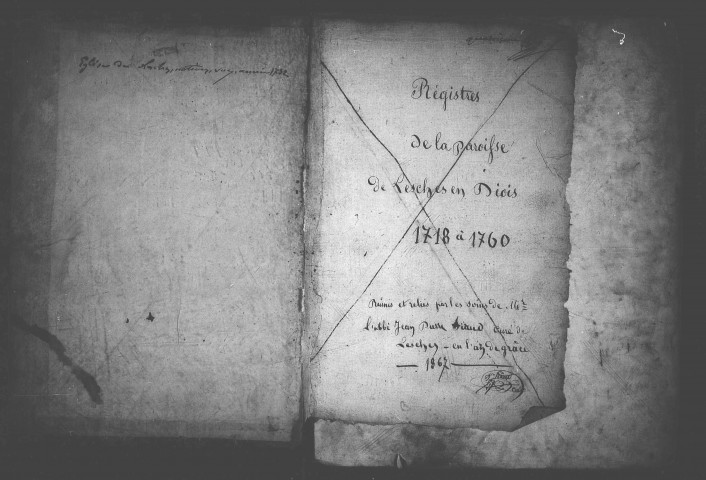 Eglise de
Régistres
de la paroisse
de Lesches en Diois
1718 à 1760
Réunis et reliés par les soins de Mr
l'abbé Jean Pierre curé de
Lesches - en l'an de grâce
1867